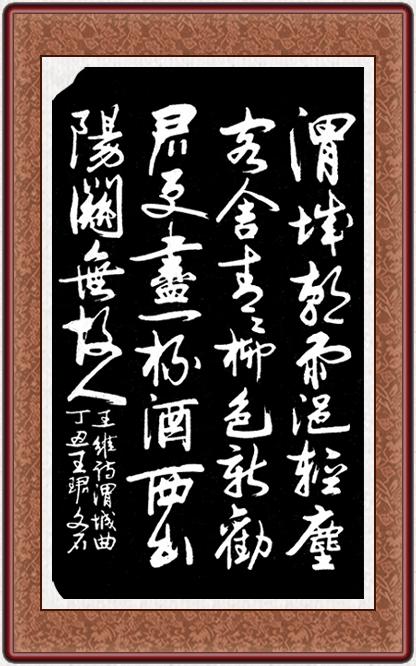 渭城朝雨浥輕塵
客舍青々柳色新勸
君更盡一杯酒西出
陽關無故人
王維詩渭城曲
丁丑王珺文